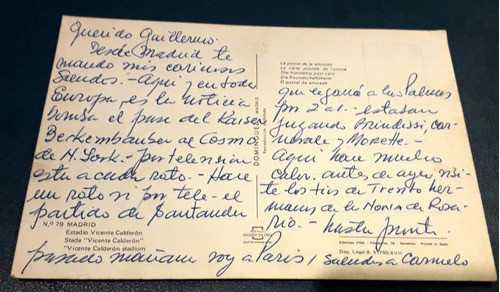 Querido Guillermo:
Desde Madrid te
mando mis cariñosos
saludos.- Aquí y en toda
Europa, es la noticia
bomba el pase del Kaiser
Beckembauer al Cosmo
de N. York.- por television
esta a cada rato.- Hace
un rato vi por tele- el
partido de Santander
que le ganó a las Palmas
por 2 a 1.- estaban
jugando Brindissi, Car-
nevale y Morete.-
Aqui hace mucho
calor. antes de ayer visi-
te los tios de Trento her-
manos de la Nona de Rosa-
rio.- hasta pronto.
pasado mañana voy a Paris / saludos a Carmelo
La postal de la amistad
La carte postale de l'amitié
The friendship post card
Die Freundschaftskarte
O postal da amizade
DOMINGUEZ MADRID
N.º 79 MADRID
Estadio Vicente Calderón
Stade "Vicente Calderón"
"Vicente Calderón" stadium
Dep. Legal B. 51750-XVII